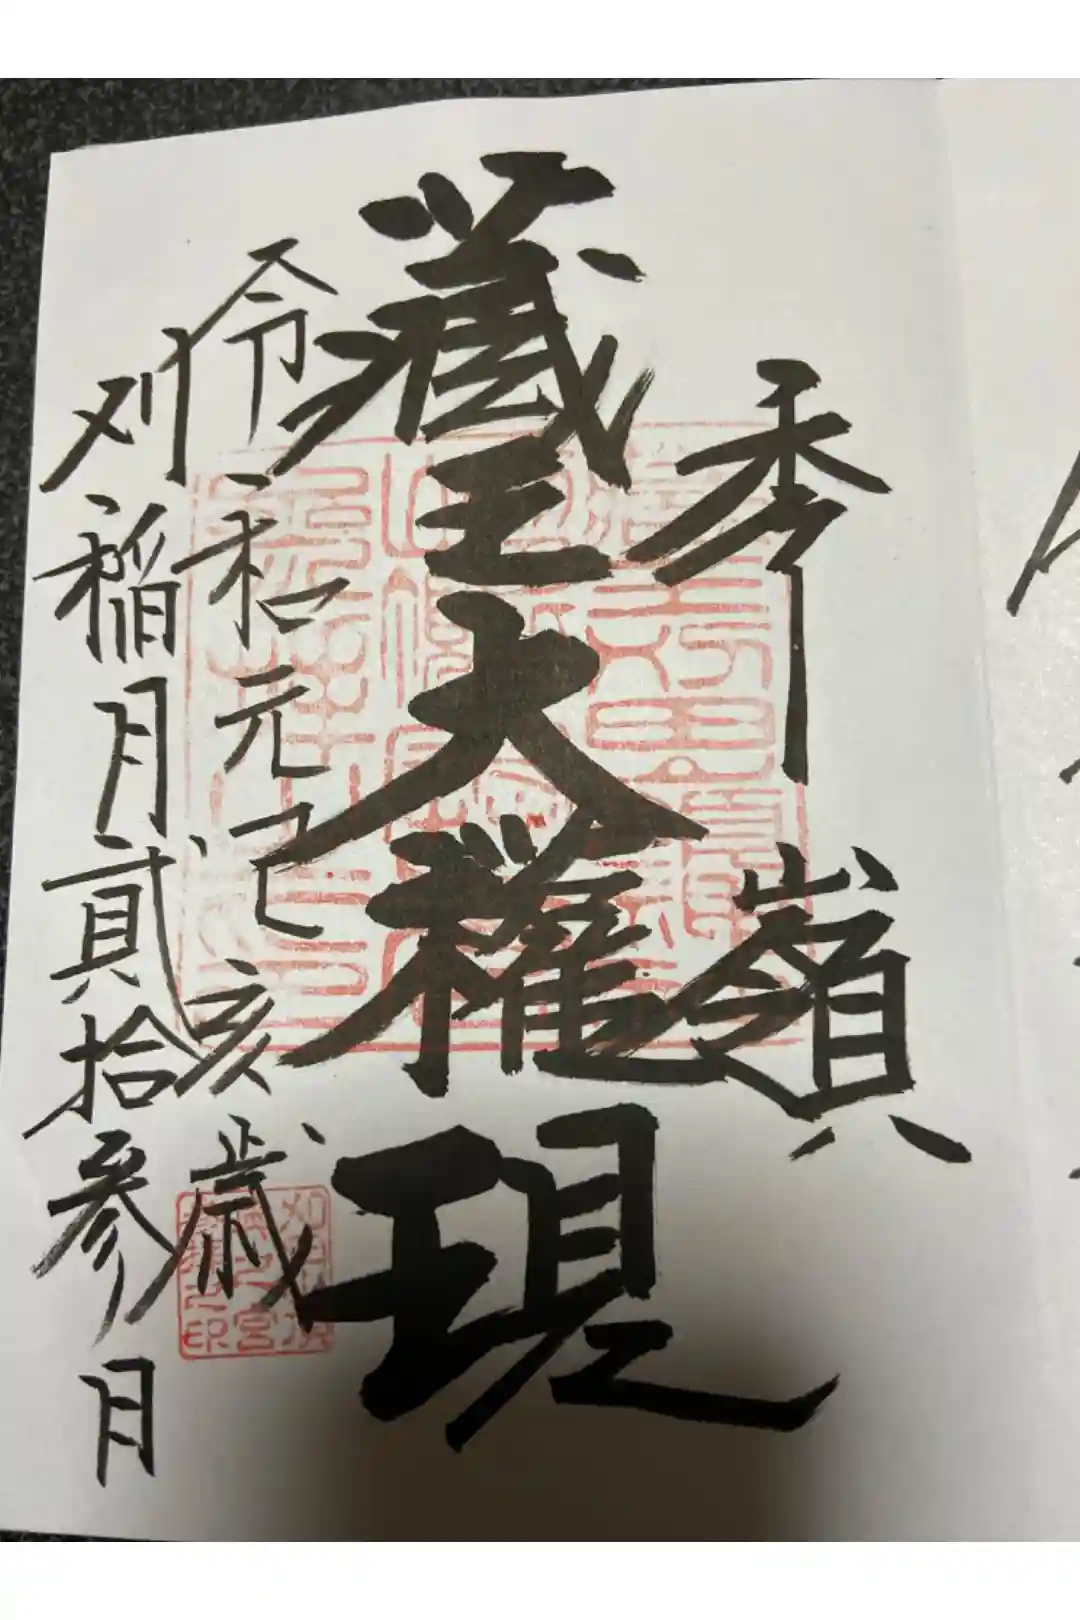 秀嶺
蔵王大権現
令和元己亥歳
刈稲月貳拾参月